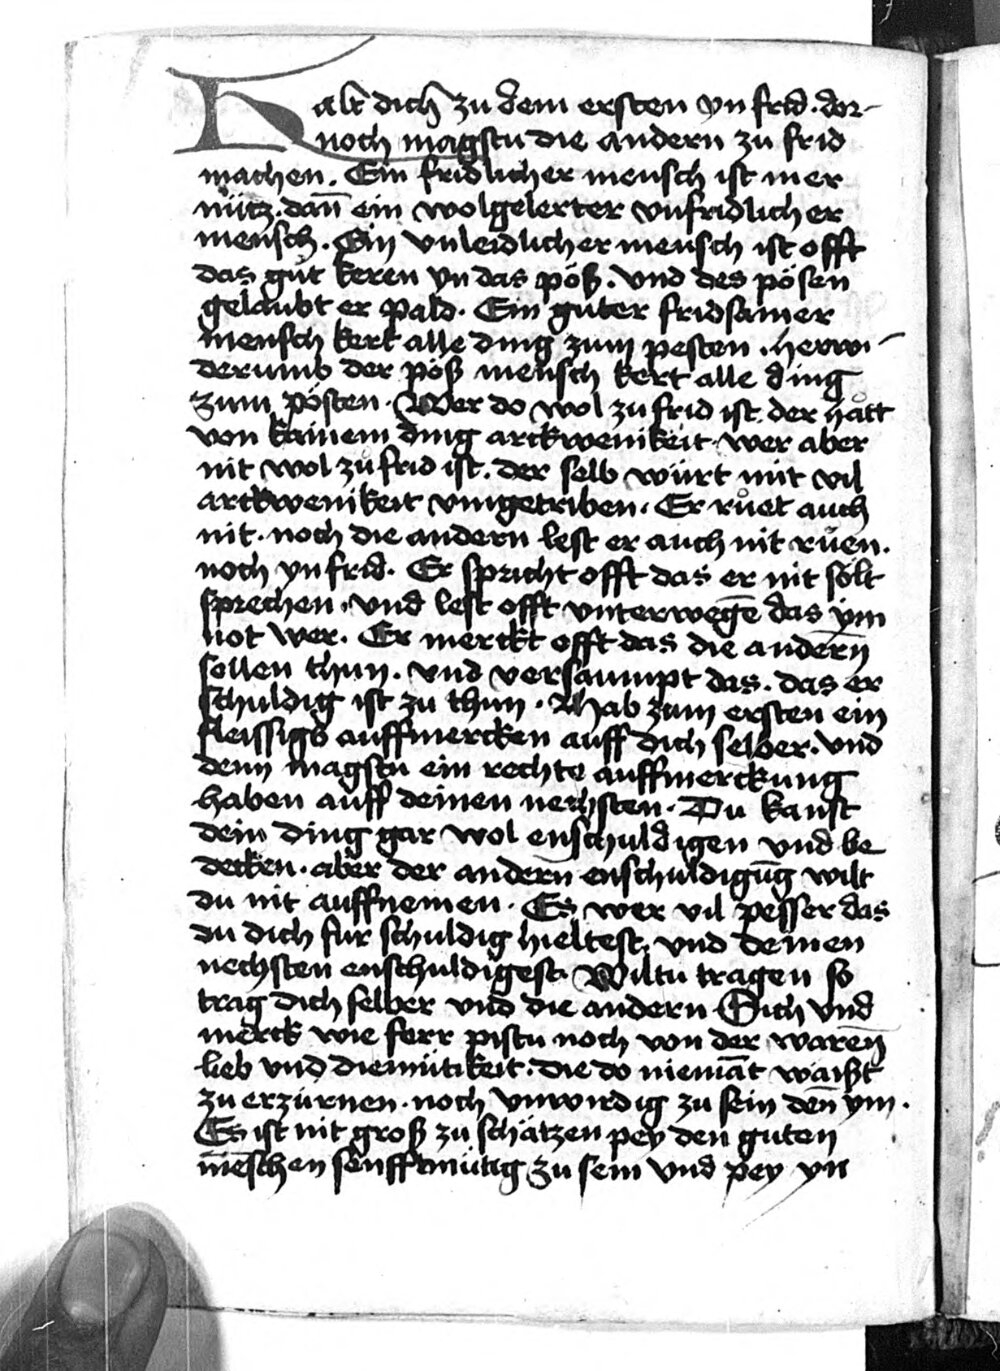 Halt dich zu dem ersten yn frid. dor-
noch magstu die andern zu frid
machen. Ein fridlicher mensch ist mer
nütz. dañ ein wolgelerter vnfridlicher
mensch. Ein vnleidlicher mensch ist offt
das gůt keren yn das pöß. vnd des pösen
gelaubt er pald. Ein guter fridsamer
mensch kert alle ding zum pesten. herwi-
derumb der pöß mensch kert alle ding
zum pösten. Wer do wol zu frid ist. der hått
von kainem ding arckwenikeit. wer aber
nit wol zů frid ist. der selb würt mit vil
arckwenikeit vmgetriben. Er růet auch
nit. noch die andern lest er auch nit růen.
noch yn frid. Er spricht offt das er nit sölt
sprechen. vnd lest offt vnterwegē das ym
not wer. Er merckt offt das die andern̄
sollen thun. vnd versaumpt das. das er
schuldig ist zu thun. Hab zum ersten ein
fleissigs auffmercken auff dich selber. vnd
denn magstu ein rechte auffmerckung
haben auff deinen nechsten. Du kanst
dein ding gar wol enschuldigen vnd be
decken. aber der andern̄ enschuldigūg wilt
du nit auffnemen. Es wer vil pesser das
du dich fur schuldig hieltest. vnd deinen
nechsten enschuldigest. Wiltu tragen so
trag dich selber vnd die andern. Sich vnd
merck wie ferr pistu noch von der waren̄
lieb vnd diemütikeit. die do niemāt waißt
zu erzürnen. noch vnwirdig zu sein den̄ ym.
Es ist nit groß zu schätzen pey den guten
mēschen senfftmütig zu sein vnd pey yn